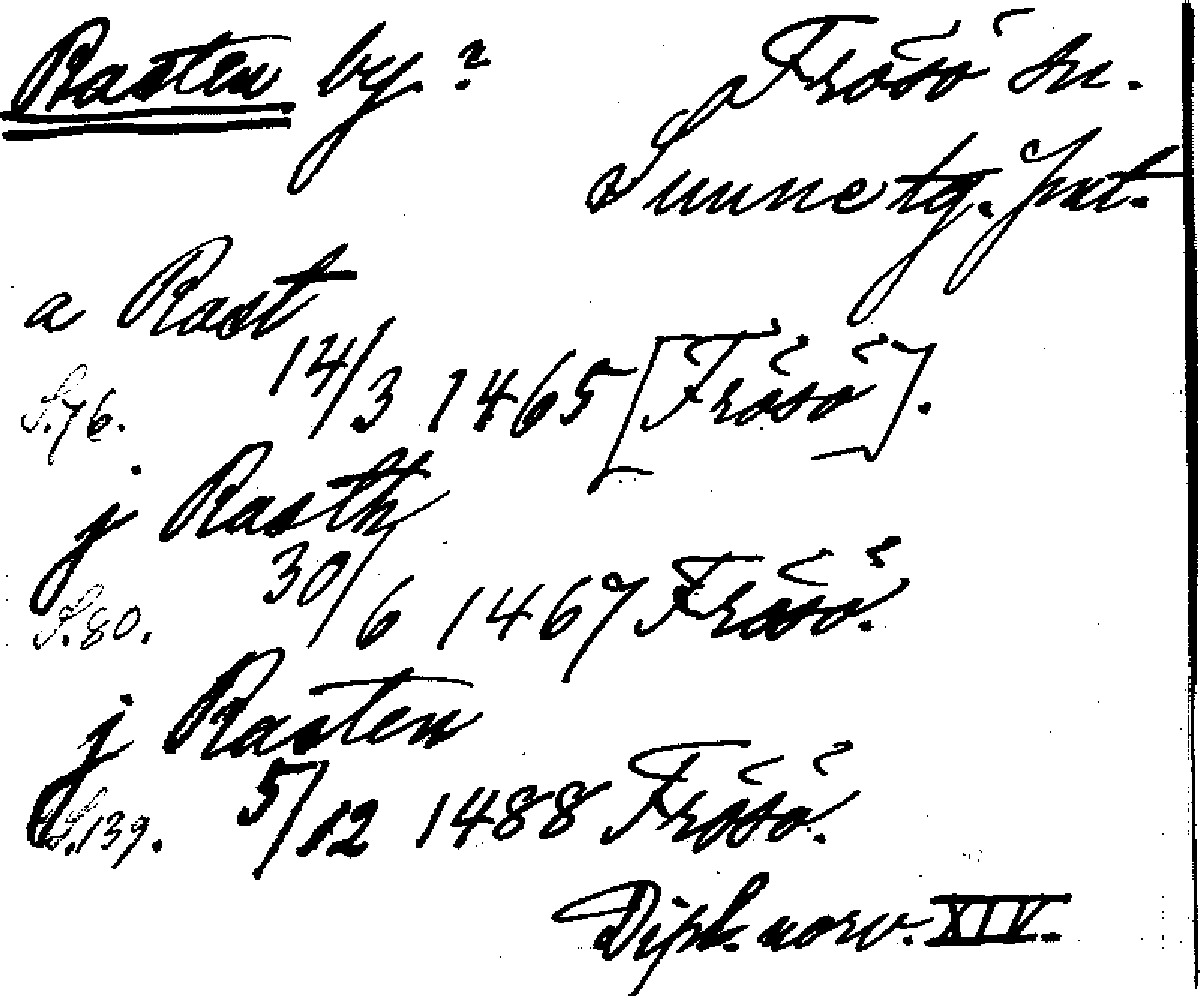 Rasten by.? Frösö sn.
Sunne tg. Jmt.
a Rast
14/3 1465 [Frösö].
S. 76.
j Rasth
30/6 1467 Frösö.
S. 80.
j Rasten
5/12 1488 Frösö.
S. 139.
Dipl. norv. XIV.